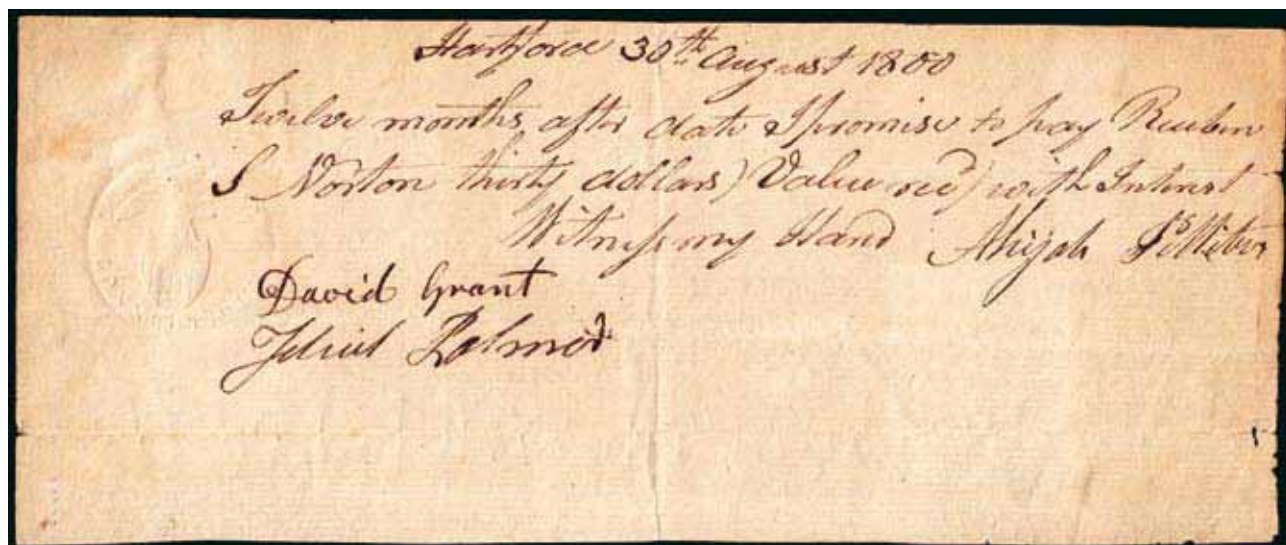 Hartford 30th August 1800
Twelve months after date I promise to pay Reuben
S Norton thirty dollars) Value recd) with Interest
Witness my Hand Ahijah
David Grant